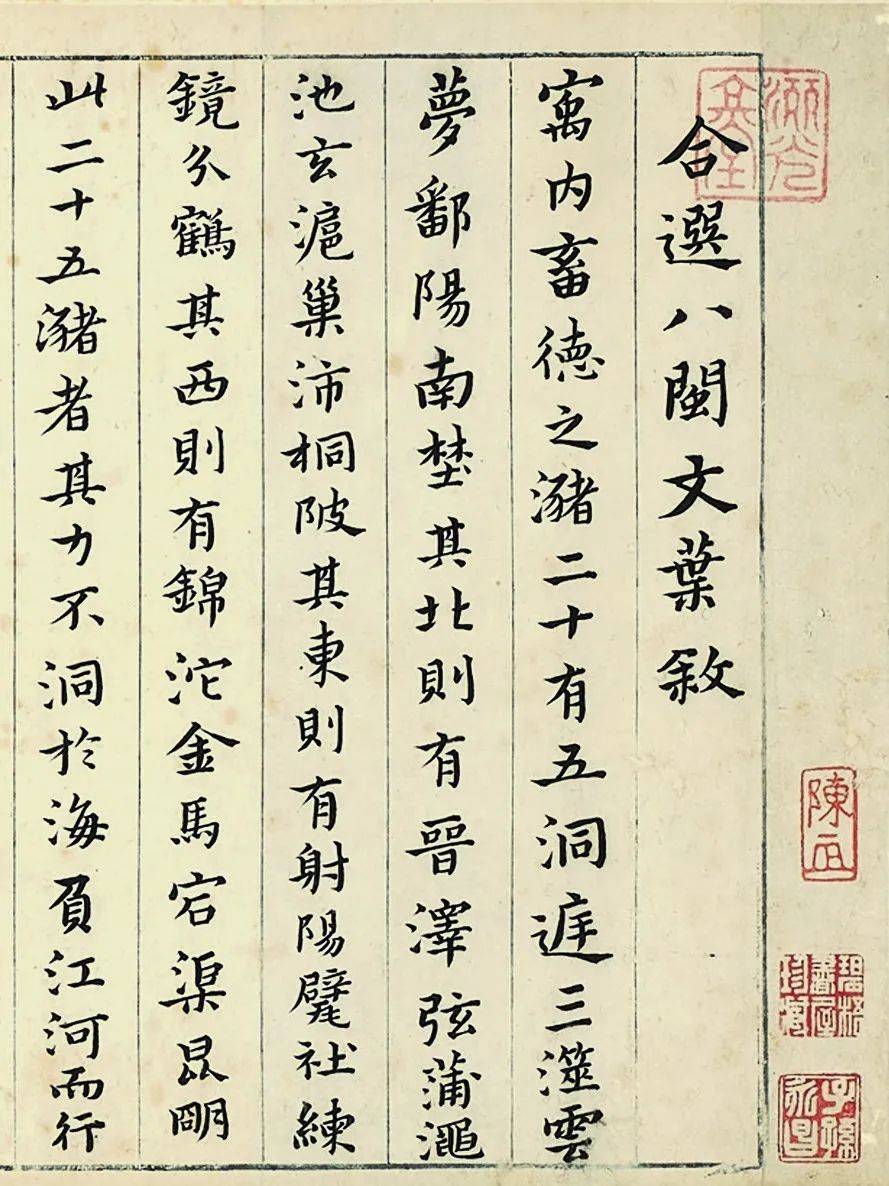 合選八閩文葉敘
寓內畜德之瀦二十有五洞庭三澨雲
夢鄱陽南埜其北則有晉澤弦蒲澠
池玄滬巢沛桐陂其東則有射陽甓社練
鏡分鶴其西則有錦沱金馬宕渠昆明
此二十五瀦者其力不洞於海負江河而行
子孫永昌